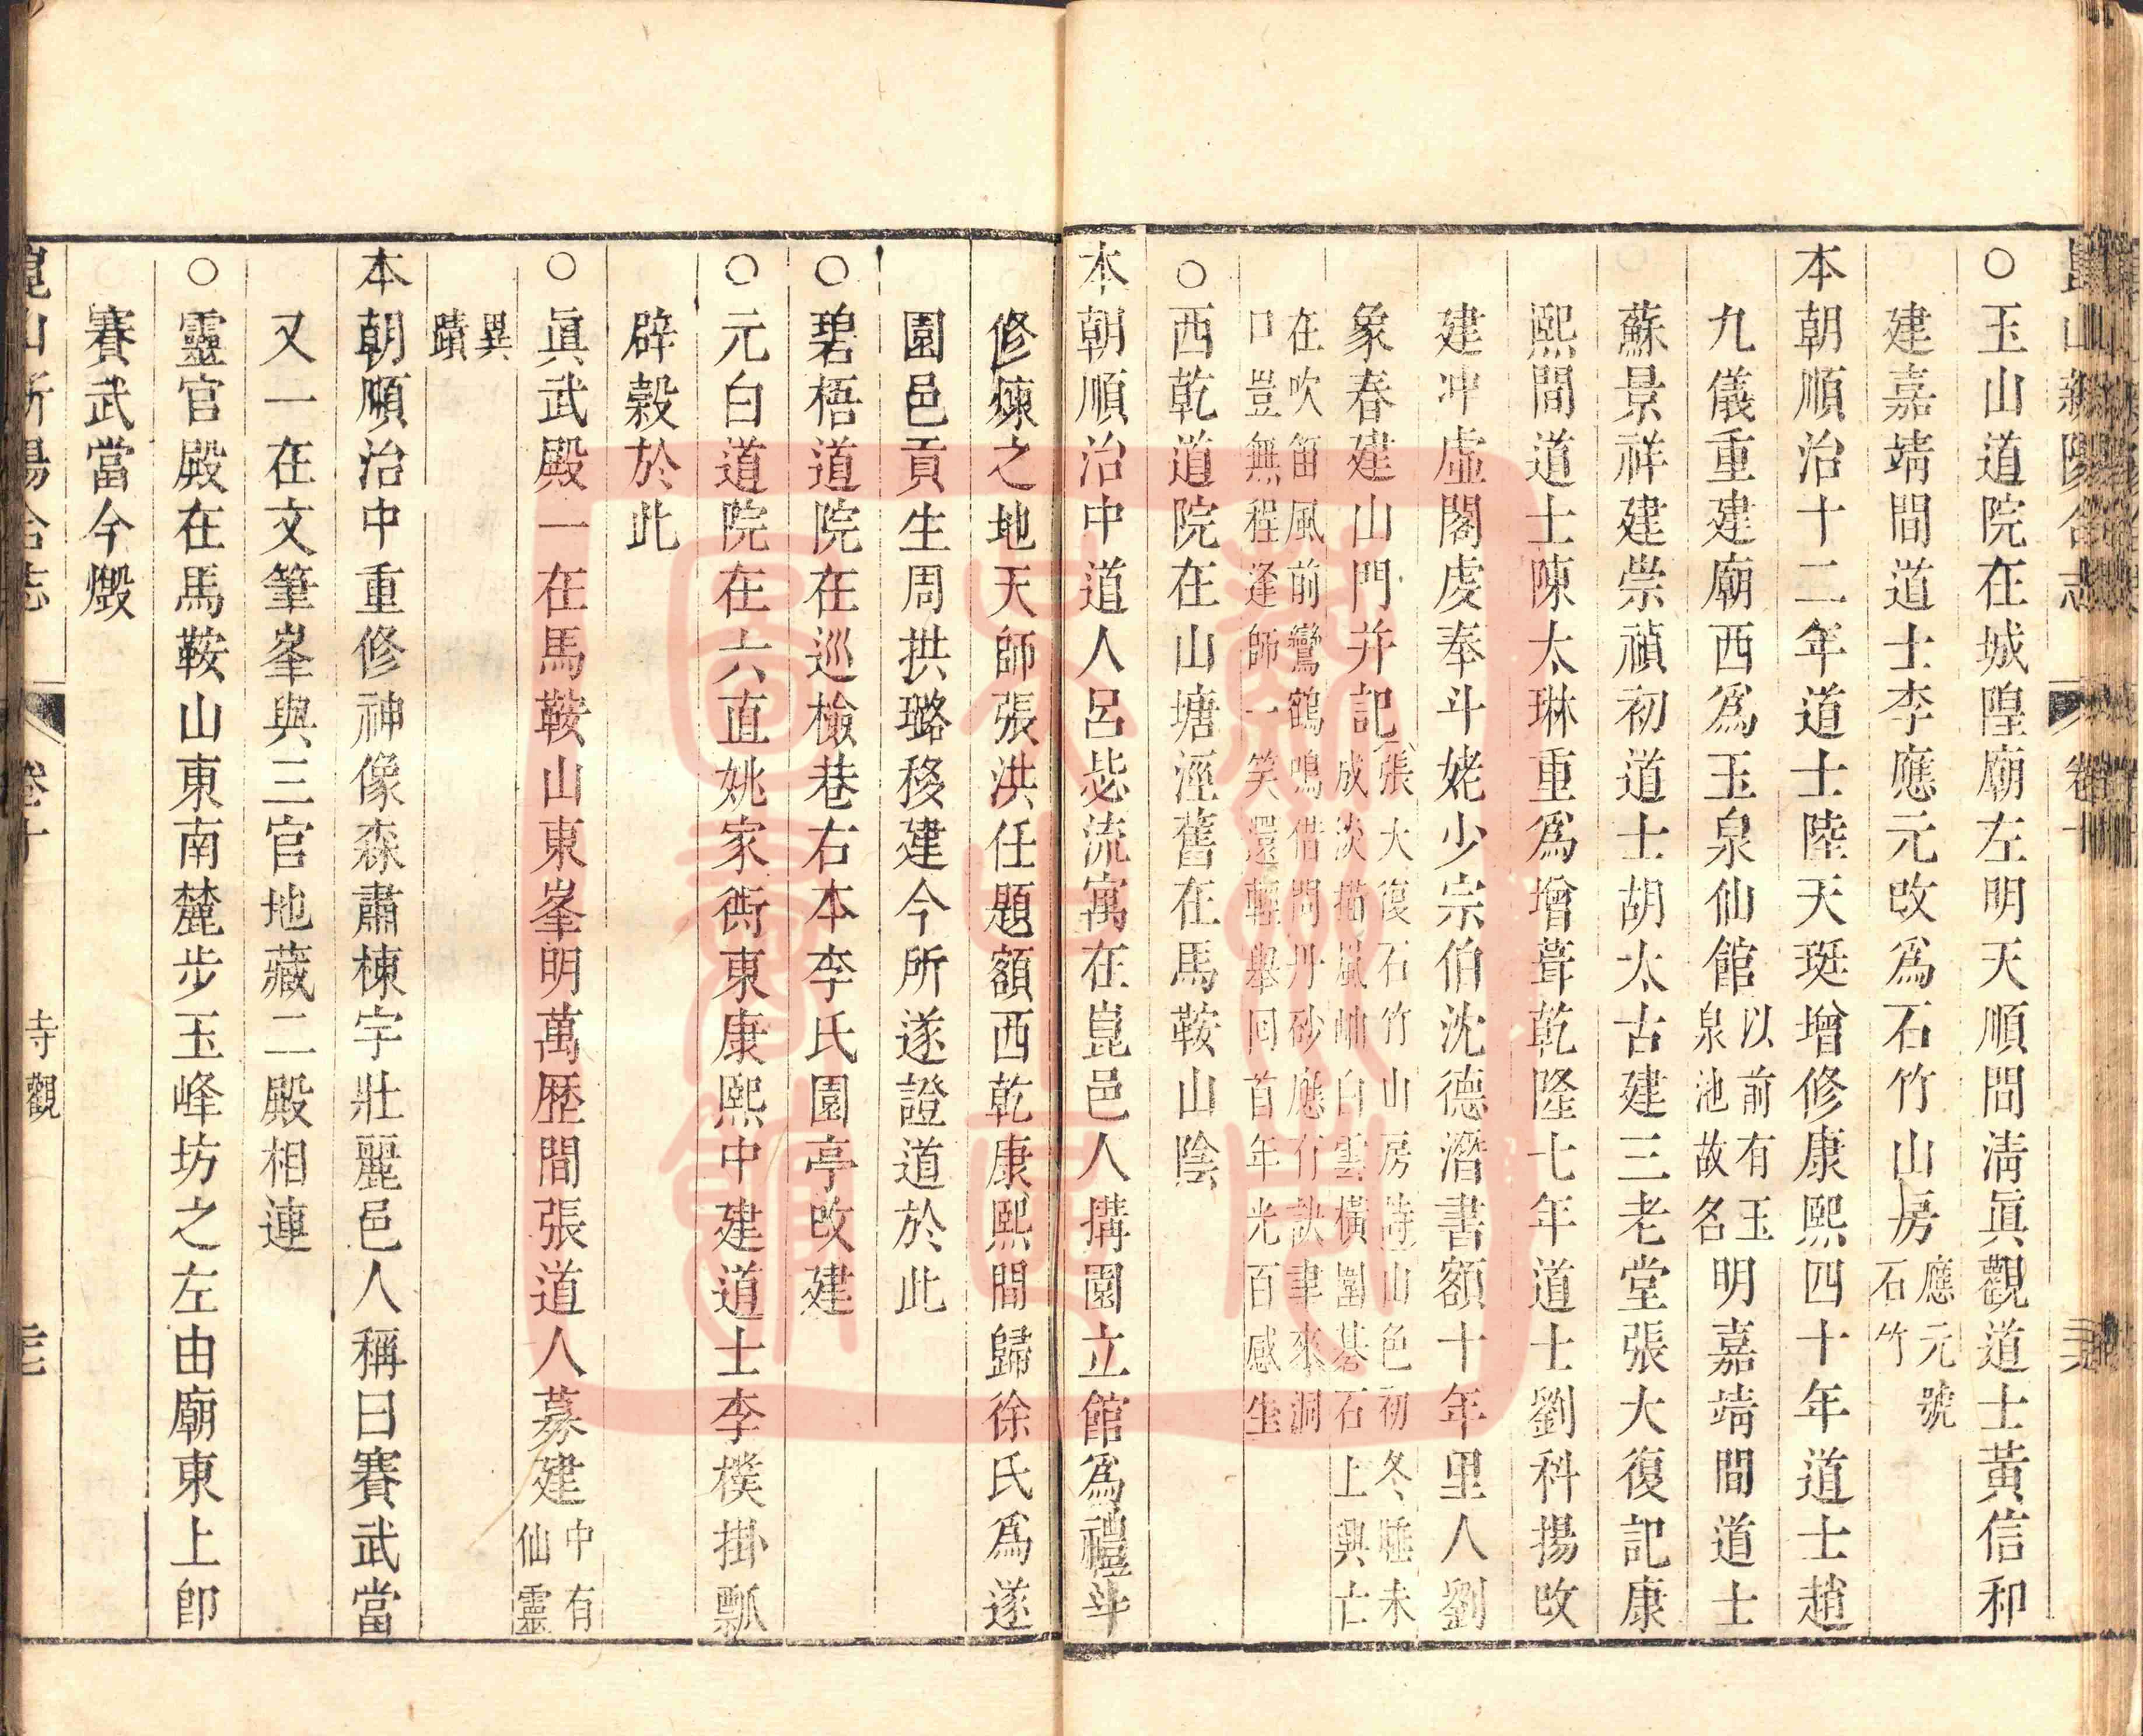 ○玉山道院在城隍廟左明天順間淸眞觀道士黃信和
建嘉靖間道士李應元改爲石竹山房應元號石竹
本朝順治十二年道士陸天珽增修康熙四十年道士趙
九儀重建廟西爲玉泉仙館以前有玉泉池故名明嘉靖間道士
蘇景祥建崇禎初道士胡太古建三老堂張大復記康
熙間道士陳太琳重爲增葺乾隆七年道士劉科揚改
建冲虛閣虔奉斗姥少宗伯沈德潛書額十年里人劉
象春建山門幷記張大復石竹山房詩山色初冬睡未成淡描嵐岫白雲橫圍碁石上興亡
在吹笛風前鸞鶴鳴借問丹砂應有訣聿來洞口豈無程逢師一笑還輕舉回首年光百感生
○西乾道院在山塘涇舊在馬鞍山陰
本朝順治中道人呂毖流寓在崑邑人搆園立館爲禮斗
修煉之地天師張洪任題額西乾康熙間歸徐氏爲遂
園邑貢生周拱璐移建今所遂證道於此
○碧梧道院在巡檢巷右本李氏園亭改建
○元白道院在六直姚家衖東康熙中建道士李樸掛瓢
辟穀於此
○眞武殿一在馬鞍山東峯明萬歷間張道人募建中有仙靈
異蹟
本朝順治中重修神像森肅棟宇壯麗邑人稱曰賽武當
又一在文筆峯與三官地藏二殿相連
○靈官殿在馬鞍山東南麓步玉峰坊之左由廟東上卽
賽武當今燬
崑山新陽合志
卷十
寺觀